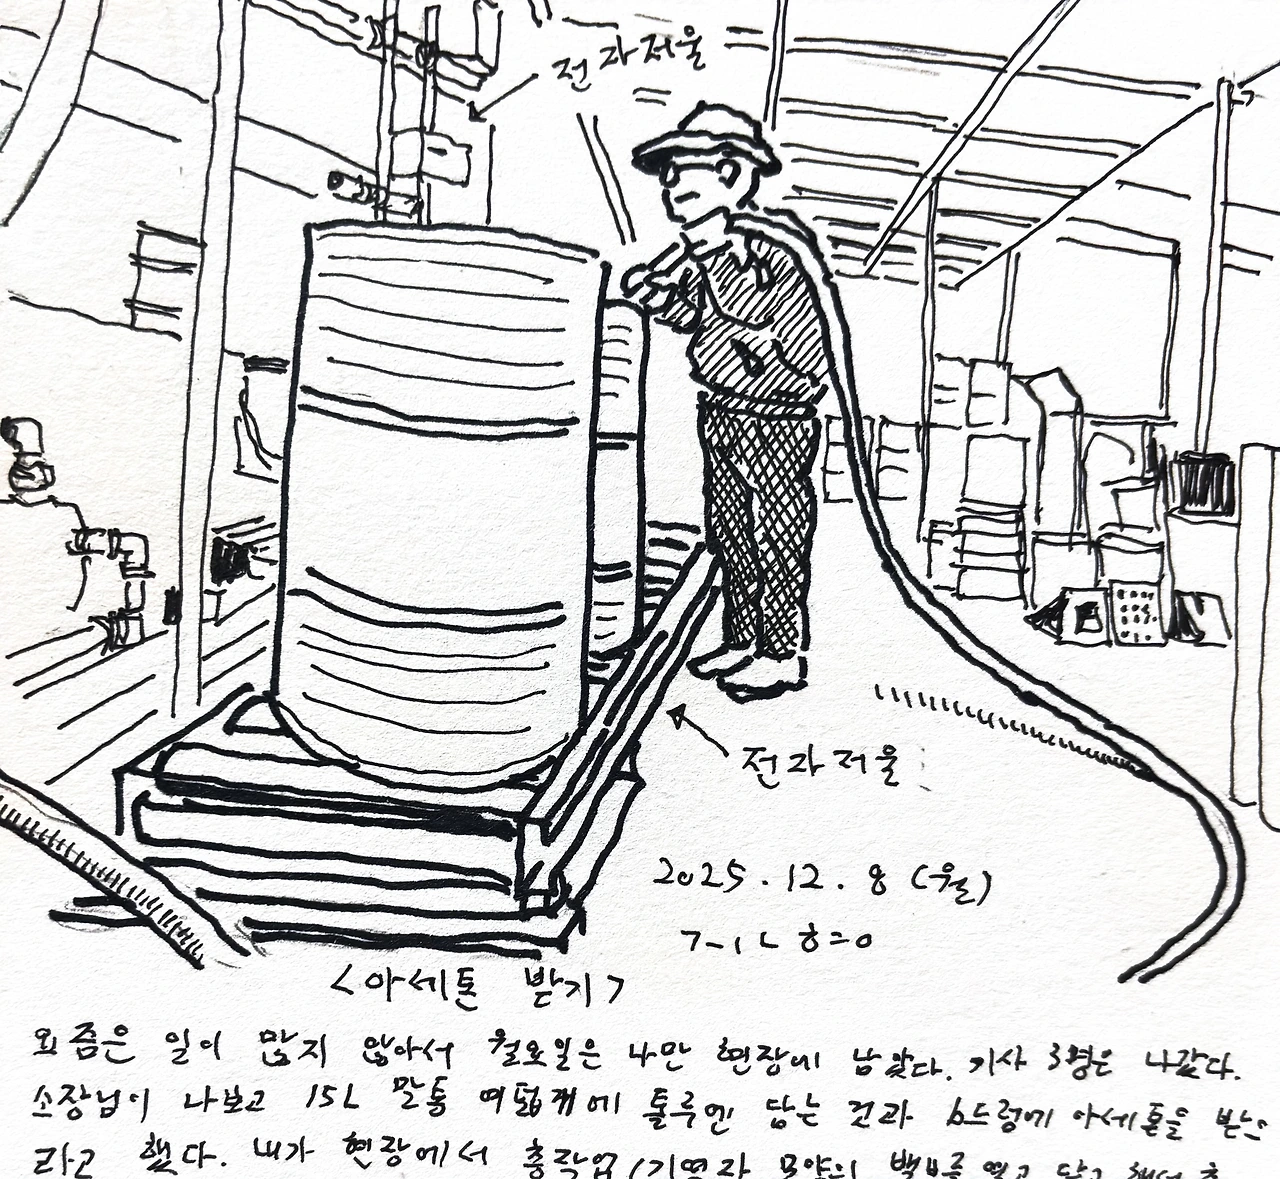 전자저울
전자저울
2025.12.8 (월)
<아세톤 받기>
요즘은 일이 많지 않아서 월요일은 나만 현장에 남았다. 기사 3명은 나갔다.
소장님이 나보고 15L 말통 여덟개에 톨루엔 담는 것과 6드럼에 아세톤을 받으
라고 했다. 내가 현장에서 총작업